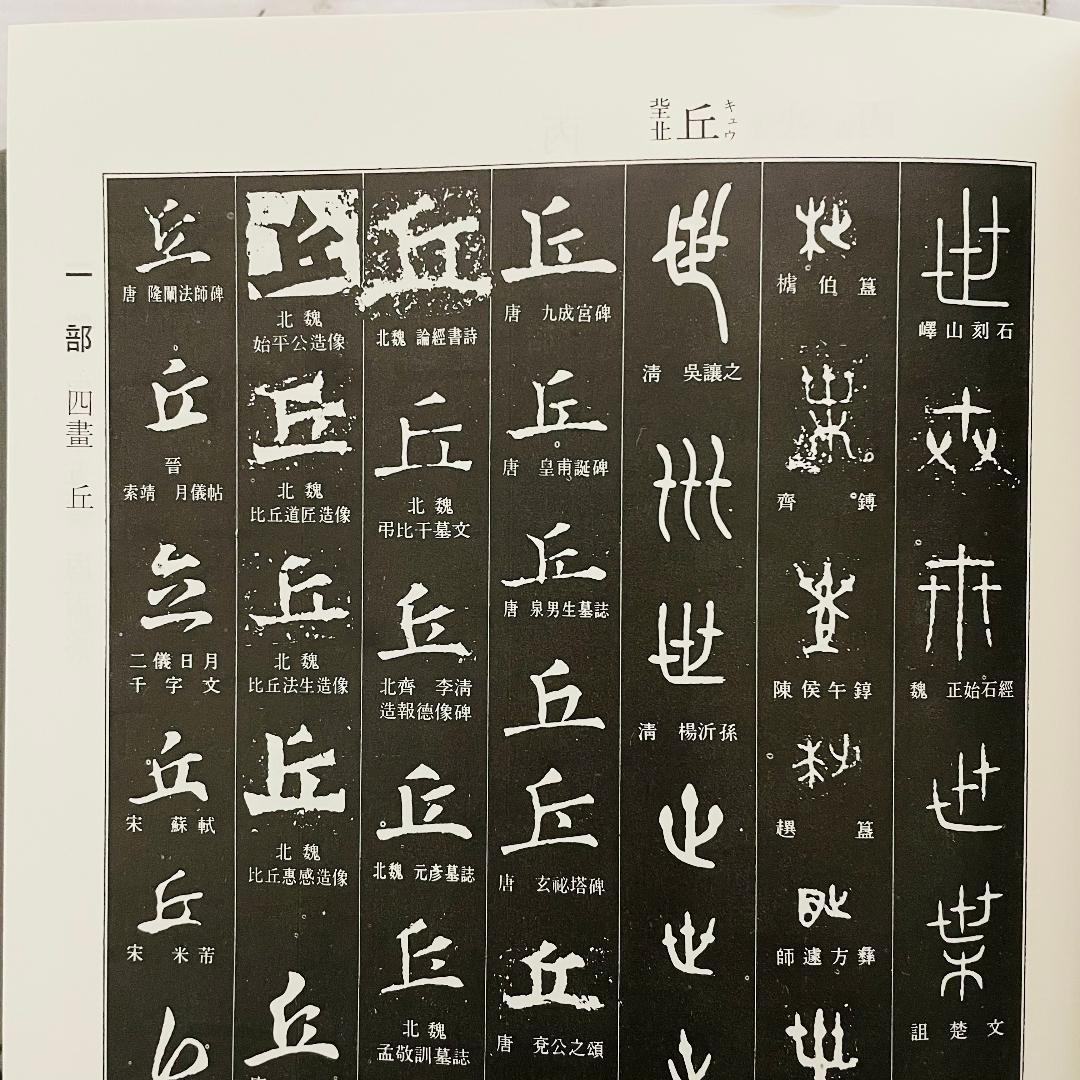 丘
キュウ
世
嶧山刻石
世
世
魏 正始石經
世
枼
詛楚文
伯簋
齊鎛
陳侯午錞
趩簋
師遽方彝
世
清 吳讓之
世
世
清 楊沂孫
丘
唐 九成宮碑
丘
唐 皇甫誕碑
丘
唐 泉男生墓誌
丘
丘
唐 玄祕塔碑
丘
唐 兗公之頌
丘
北魏 論經書詩
丘
北魏
弔比干墓文
丘
北齊 李清
造報德像碑
丘
北魏 元彥墓誌
丘
北魏
孟敬訓墓誌
丘
北魏
始平公造像
丘
北魏
比丘道匠造像
丘
北魏
比丘法生造像
丘
北魏
比丘惠感造像
丘
丘
唐 隆闡法師碑
丘
晉
索靖 月儀帖
丘
二儀日月
千字文
丘
宋 蘇軾
丘
宋 米芾
一部 四畫 丘